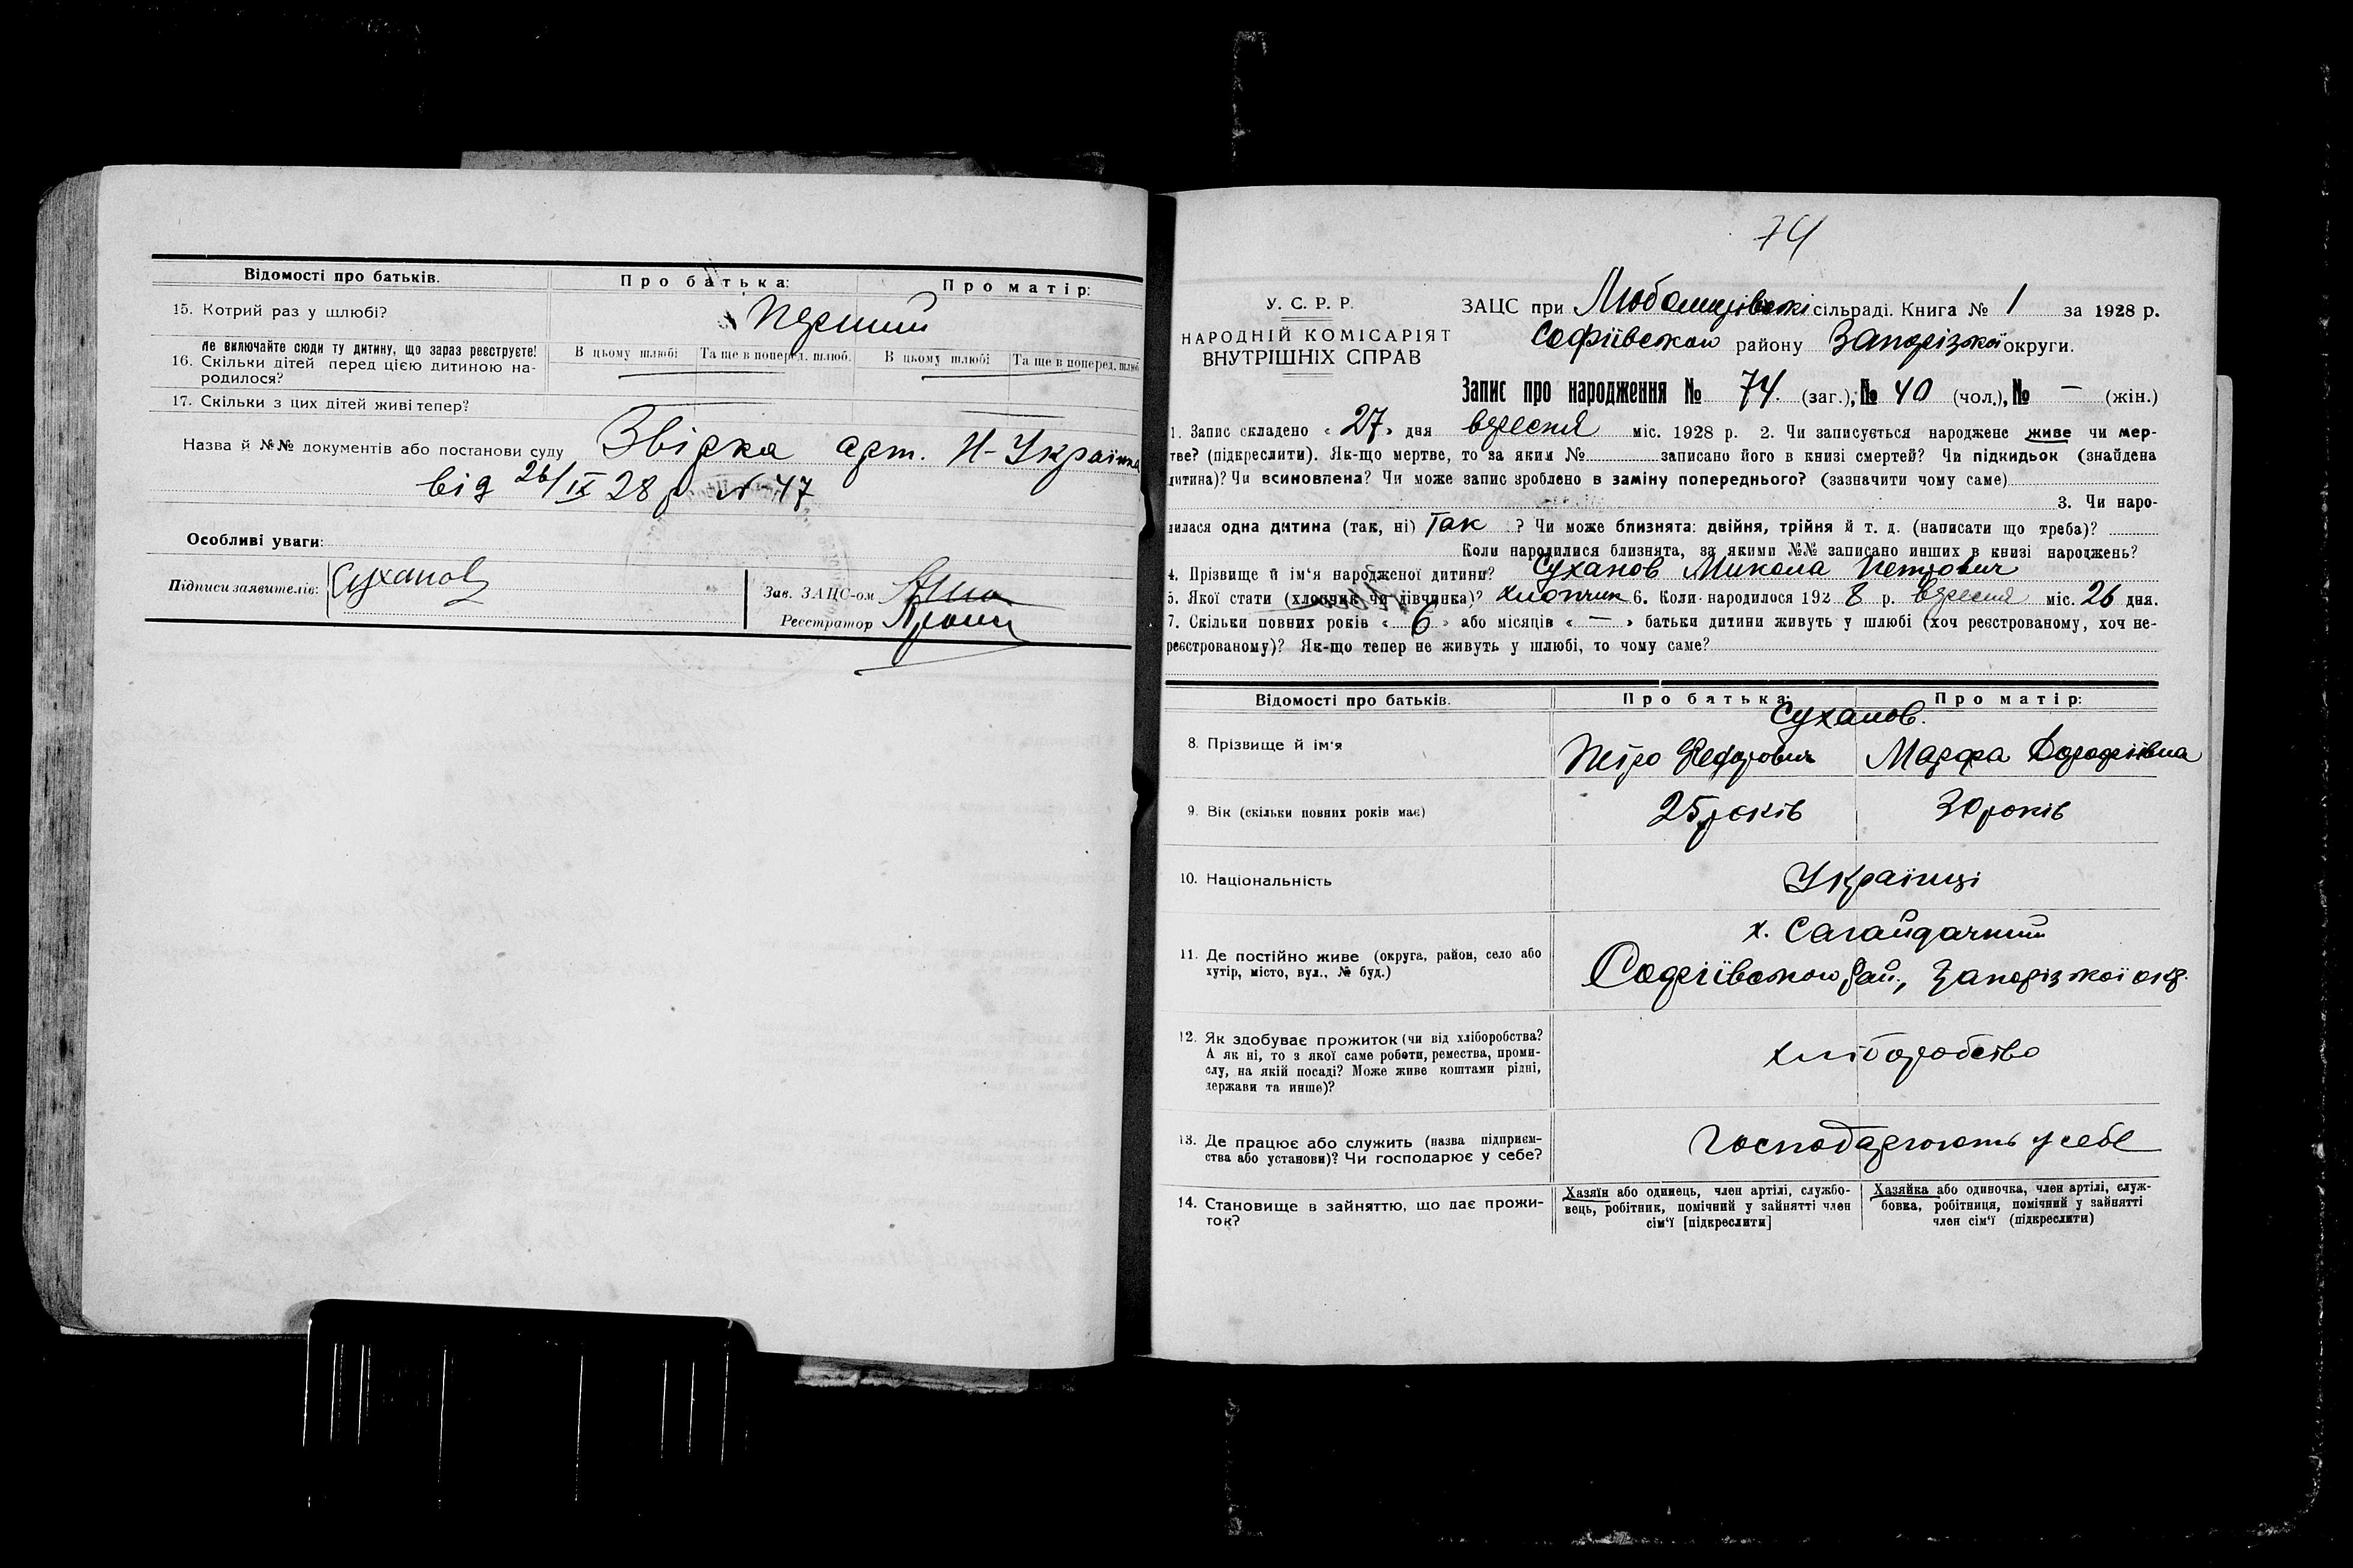 Відомості про батьків. Про батька: Про матір:
15. Котрий раз у шлюбі? Перший
Не включайте сюди ту дитину, що зараз реєструєте!
16. Скільки дітей перед цією дитиною на-
родилося?
В цьому шлюбі Та ще в поперед. шлюб. В цьому шлюбі Та ще в поперед. шлюб
17. Скільки з цих дітей живі тепер?
Назва й №№ документів або постанови суду Звідка арт. Н-Українка
від 26/IX 28 р № 47
Особливі уваги:
Підписи заявителів: Суханов
Зав. ЗАЦС-ом
Реєстратор
74
У. С. Р. Р.
НАРОДНІЙ КОМІСАРІЯТ
ВНУТРІШНІХ СПРАВ
ЗАЦС при сільраді. Книга № 1 за 1928 р.
Софіївського району Запорізької округи.
Запис про народження № 74. (заг.), № 40 (чол.), № — (жін.)
1. Запис складено « 27 » дня вересня міс. 1928 р. 2. Чи записується народжене живе чи мер-
тве? (підкреслити). Як-що мертве, то за яким № записано його в книзі смертей? Чи підкидьок (знайдена
дитина)? Чи всиновлена? Чи може запис зроблено в заміну попереднього? (зазначити чому саме)
3. Чи наро-
дилася одна дитина (так, ні) Так ? Чи може близнята: двійня, трійня й т. д. (написати що треба)?
Коли народилися близнята, за якими №№ записано инших в книзі народжень?
4. Прізвище й ім'я народженої дитини? Суханов Микола Петрович
5. Якої стати (хлопчик чи дівчинка)? хлопчик 6. Коли народилося 192 8 р. вересня міс. 26 дня.
7. Скільки повних років « 6 » або місяців « — » батьки дитини живуть у шлюбі (хоч реєстрованому, хоч не-
реєстрованому)? Як-що тепер не живуть у шлюбі, то чому саме?
Відомості про батьків. Про батька: Про матір:
Суханов.
8. Прізвище й ім'я Петро Федорович Марфа Дорофіївна
9. Вік (скільки повних років має) 25 років 30 років
10. Національність Українці
х. Сагайдачний
11. Де постійно живе (округа, район, село або
хутір, місто, вул., № буд.)
Софіївського рай., Запорізької окр.
12. Як здобуває прожиток (чи від хліборобства?
А як ні, то з якої саме роботи, ремества, проми-
слу, на якій посаді? Може живе коштами рідні,
держави та инше)?
хліборобство
13. Де працює або служить (назва підприєм-
ства або установи)? Чи господарює у себе?
Господарюють у себе
14. Становище в зайняттю, що дає прожи-
ток?
Хазяїн або одинець, член артілі, службо-
вець, робітник, помічний у зайнятті член
сім'ї [підкреслити]
Хазяйка або одиночка, член артілі, служ-
бовка, робітниця, помічний у зайнятті
член сім'ї (підкреслити)